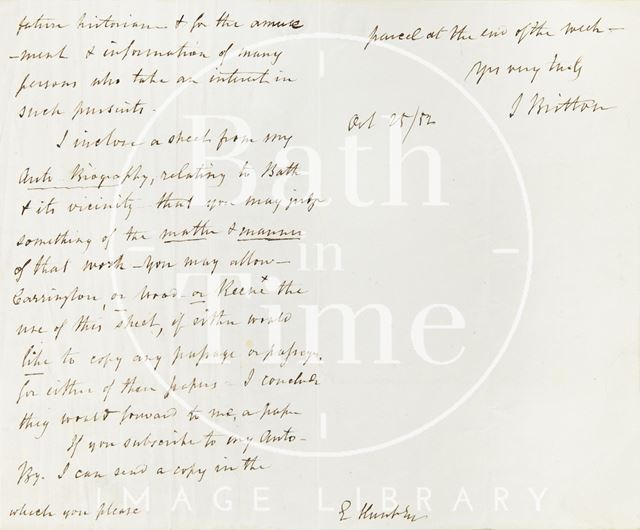 future historian & for the amuse
-ment & information of many
persons who take an interest in
such pursuits.
I inclose a sheet from my
Auto Biography, relating to Bath
& its vicinity that you may judge
something of the matter & manner
of that work - You may allow -
Carrington, or Wood or Keene x the
use of this sheet, if either would
like to copy any passage or passages.
for either of their papers - I conclude
they would forward to me, a paper
If you subscribe to my Auto-
By. I can send a copy in the
which you please
parcel at the end of the week -
Yrs very truly
J Britton
Oct 25/52
E Hunt
Bath
in
Time
IMAGE LIBRARY